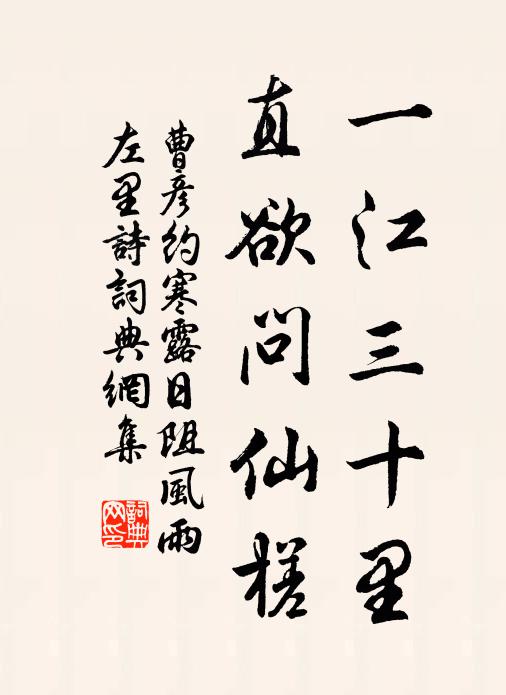 一江三十里
直欲問仙槎
曹彥約寒露日阻風雨
左里詩詞典網集
詞典網印